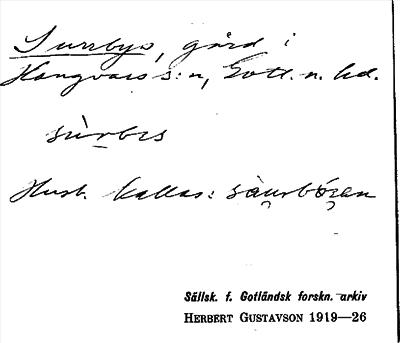 Surrbys, gård i
Hangvars s:n, Gotl. n. hd.
sùrbis
Husb. kallas: sàurbóʒen
Sällsk. f. Gotländsk forskn. arkiv
HERBERT GUSTAVSON 1919—26